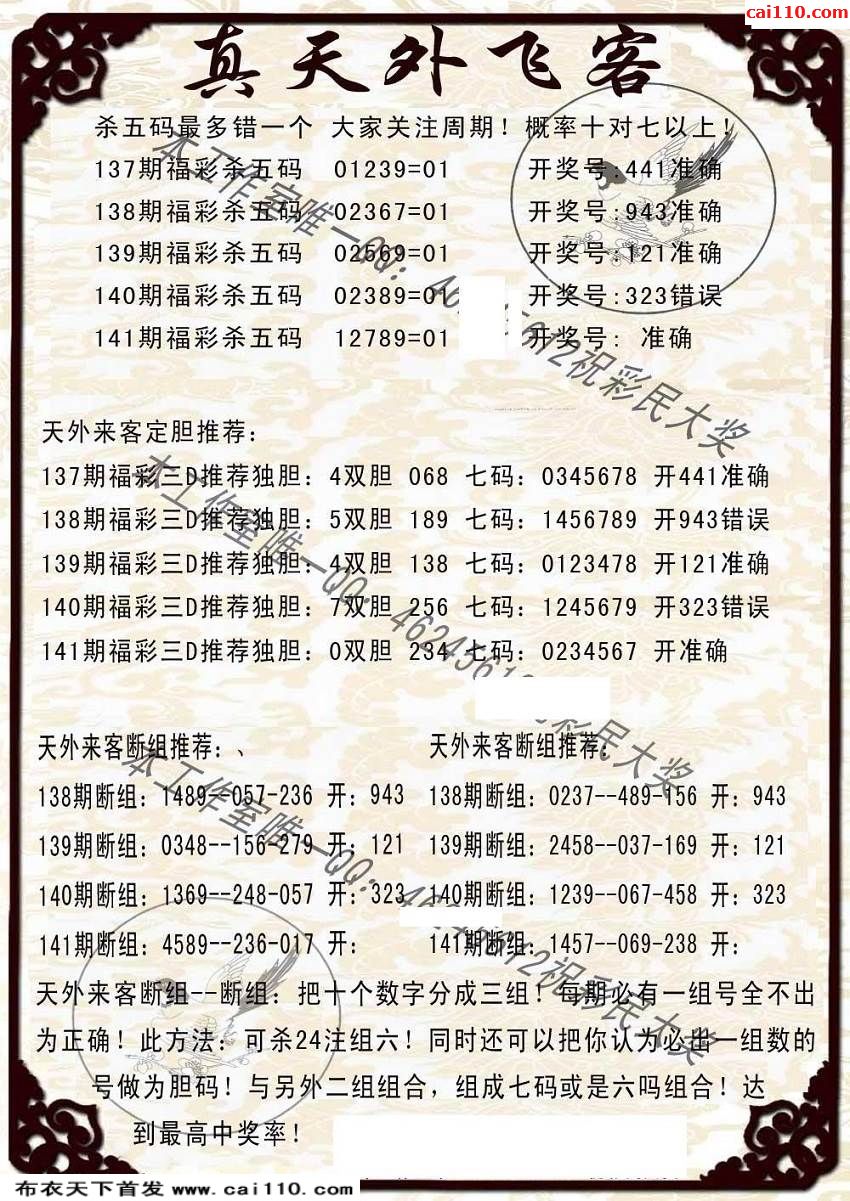 cai110.com
真天外飞客
杀五码最多错一个 大家关注周期！概率十对七以上！
137期福彩杀五码 01239=01 开奖号:441准确
138期福彩杀五码 02367=01 开奖号:943准确
139期福彩杀五码 02569=01 开奖号:121准确
140期福彩杀五码 02389=01 开奖号:323错误
141期福彩杀五码 12789=01 开奖号: 准确
天外来客定胆推荐：
137期福彩三D推荐独胆：4双胆 068 七码：0345678 开441准确
138期福彩三D推荐独胆：5双胆 189 七码：1456789 开943错误
139期福彩三D推荐独胆：4双胆 138 七码：0123478 开121准确
140期福彩三D推荐独胆：7双胆 256 七码：1245679 开323错误
141期福彩三D推荐独胆：0双胆 234 七码：0234567 开准确
天外来客断组推荐：、
138期断组：1489--057-236 开：943
139期断组：0348--156-279 开：121
140期断组：1369--248-057 开：323
141期断组：4589--236-017 开：
天外来客断组推荐：
138期断组：0237--489-156 开：943
139期断组：2458--037-169 开：121
140期断组：1239--067-458 开：323
141期断组：1457--069-238 开：
天外来客断组--断组：把十个数字分成三组！每期必有一组号全不出
为正确！此方法：可杀24注组六！同时还可以把你认为必出一组数的
号做为胆码！与另外二组组合，组成七码或是六吗组合！达
到最高中奖率！
本工作室唯一QQ：祝彩民大奖
本工作室唯一QQ：彩民大奖
本工作室唯一QQ：祝彩民大奖
布衣天下首发 www.cai110.com